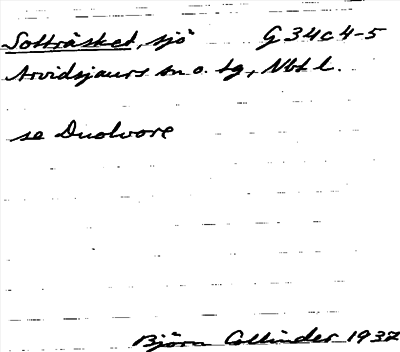 Sotträsket, sjö G 34c 4-5
Arvidsjaurs sn o. tg, Nbt l.
se Duolvore
Björn Collinder 1937